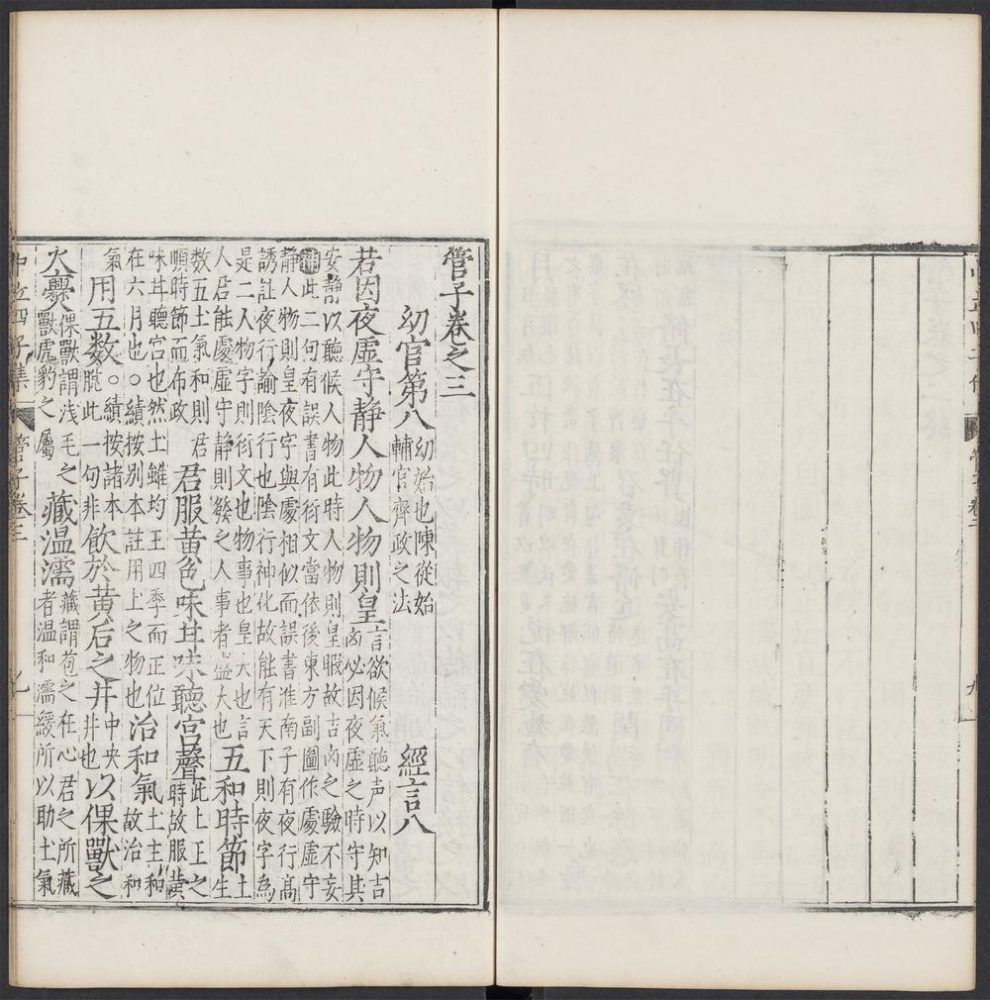 管子卷之三
幼官第八 幼始也陳從始輔官齊政之法 經言八
若因夜虛守靜人物人物則皇 言欲候氣聽声以知吉凶必因夜虛之時守其
安静以聽候人物此時人物則皇暇故吉凶之驗不妄
補此二句有誤書有衍文當依後東方副圖作處虛守
靜人物則皇夜字與處相似而誤書淮南子有夜行高
誘註夜行諭陰行也陰行神化故能有天下則夜字為
是二人物字則衍文也物事也皇大也言
人君能處虛守靜則發之人事者盛大也 五和時節 土生
数五土氣和則君順時節而布政 君服黄色味甘味聽宮聲 此上王之時故服黃
味甘聽宮也然土雖均王四季而正位
在六月也○績按别本註用上之物也 治和氣 土主和故治和
氣 用五数 ○績按諸本脫此一句非 飲於黄后之井 中央井也 以倮獸之
火爨 倮獸謂浅毛之獸虎豹之屬 藏温濡 藏謂苞之在心君之所藏者温和濡緩所以助土氣
中立四子集
管子卷三